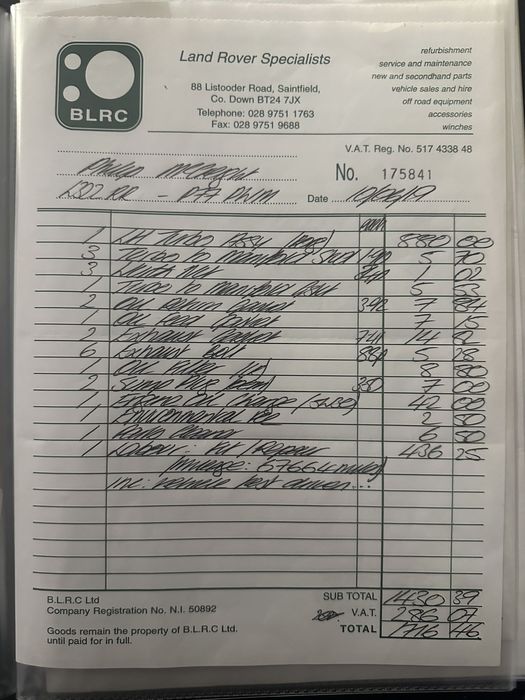 BLRC
Land Rover Specialists
88 Listooder Road, Saintfield,
Co. Down BT24 7JX
Telephone: 028 9751 1763
Fax: 028 9751 9688
refurbishment
service and maintenance
new and secondhand parts
vehicle sales and hire
off road equipment
accessories
winches
V.A.T. Reg. No. 517 4338 48
Philip
No. 175841
RR -
Date
each
1 Turbo Assy 880 00
3 Turbo to manifold Stud 190 5 70
3 Nut 1 02
1 Turbo to manifold 5 53
2 Oil Return Gasket 392 7 84
1 Oil Feed 7 15
2 Exhaust Gasket 741 14 82
6 Exhaust Bolt 88p 5 28
1 Oil Filter 8 80
2 Sump Plug 350 7 00
1 Oil Change (5W30) 42 00
1 Environmental 2 50
1 6 50
1 Labour: Repair 436 25
(mileage: 67664 miles)
inc:
B.L.R.C Ltd
Company Registration No. N.I. 50892
Goods remain the property of B.L.R.C Ltd.
until paid for in full.
SUB TOTAL 1430 39
V.A.T. 286 07
TOTAL 1716 46